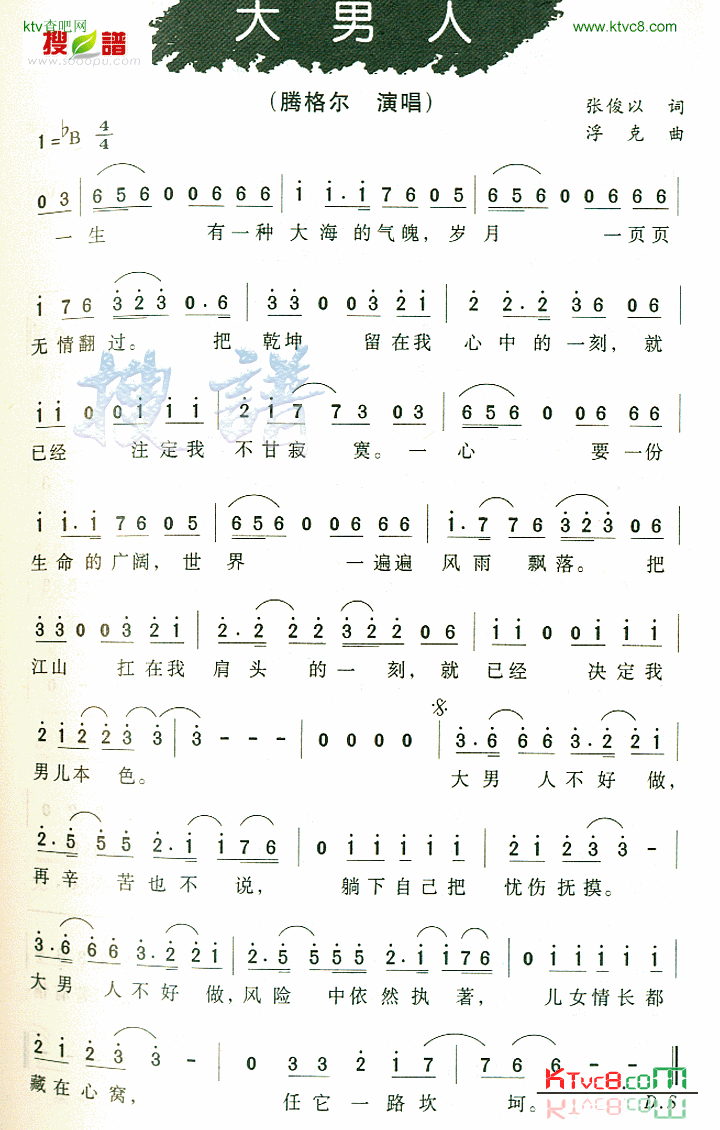 ktv查吧网
搜譜
www.sooopu.com
大男人
www.ktvc8.com
(腾格尔 演唱)
张俊以 词
浮克 曲
1=♭B 4/4
0 3 | 6 5 6 0 0 6 6 6 | i i . i 7 6 0 5 | 6 5 6 0 0 6 6 6 |
一生 有一种 大海的气魄，岁月 一页页
i 7 6 3 2 3 0 . 6 | 3 3 0 0 3 2 i | 2 2 . 2 3 6 0 6 |
无情翻过。 把 乾坤 留在我 心中的一刻，就
i i 0 0 i i i | 2 i 7 7 3 0 3 | 6 5 6 0 0 6 6 6 |
已经 注定我 不甘寂 寞。一心 要一份
i i . i 7 6 0 5 | 6 5 6 0 0 6 6 6 | i . 7 7 6 3 2 3 0 6 |
生命的广阔，世界 一遍遍 风雨 飘落。 把
3 3 0 0 3 2 i | 2 . 2 2 2 3 2 2 0 6 | i i 0 0 i i i |
江山 扛在我 肩头 的一刻，就已经 决定我
2 i 2 2 3 3 | 3 - - - | 0 0 0 0 | 3 . 6 6 6 3 . 2 2 i |
男儿本色。 大男 人不好做，
2 . 5 5 5 2 . i i 7 6 | 0 i i i i i | 2 i 2 3 3 - |
再辛 苦也不 说， 躺下自己把 忧伤抚摸。
3 . 6 6 6 3 . 2 2 i | 2 . 5 5 5 5 2 . i i 7 6 | 0 i i i i i |
大男 人不好 做，风险 中依然执 著， 儿女情长都
2 i 2 3 3 - | 0 3 3 2 i 7 | 7 6 6 - - ‖
藏在心窝， 任它一路坎 坷。
KTvc8.com
D.S